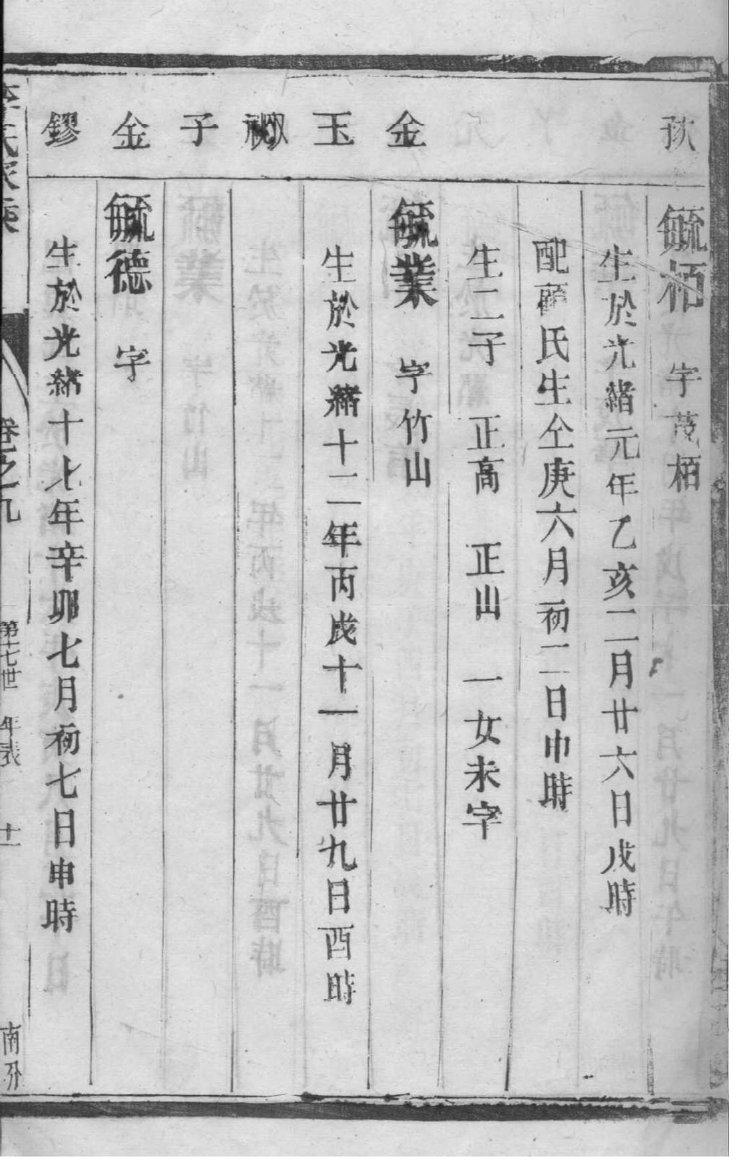 毓栢　字茂栢
生於光緒元年乙亥二月廿六日戌時
配顧氏生仝庚六月初二日申時
生二子　正高　正山　一女未字
金
毓業　字竹山
玉
生於光緒十二年丙戌十一月廿九日酉時
子
金
毓德　字
鏐
生於光緒十七年辛卯七月初七日申時
卷之九
第十七世　年表
十一